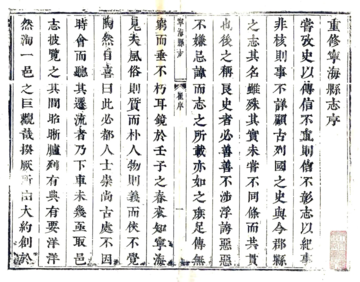 重修寧海縣志序
嘗攷史以傳信不直則信不彰志以紀事
非核則事不詳顧古列國之史與今郡縣
之志其名雖殊其實未嘗不同條而共貫
也後之稱良史者必善善不涉浮誇惡惡
不嫌忌諱而志之所載亦如之庶足傳無
寧海縣志
序
一
窮而垂不朽耳鏡於壬子之春來知寧海
見夫風俗則質而朴人物則義而俠不覺
陶然自喜曰此必都人士崇尚古處不因
時會而聽其遷流者乃下車未幾亟取邑
志披覽之其間昭晰臚列有典有要洋洋
然洵一邑之巨觀哉揆厥所 大約創於